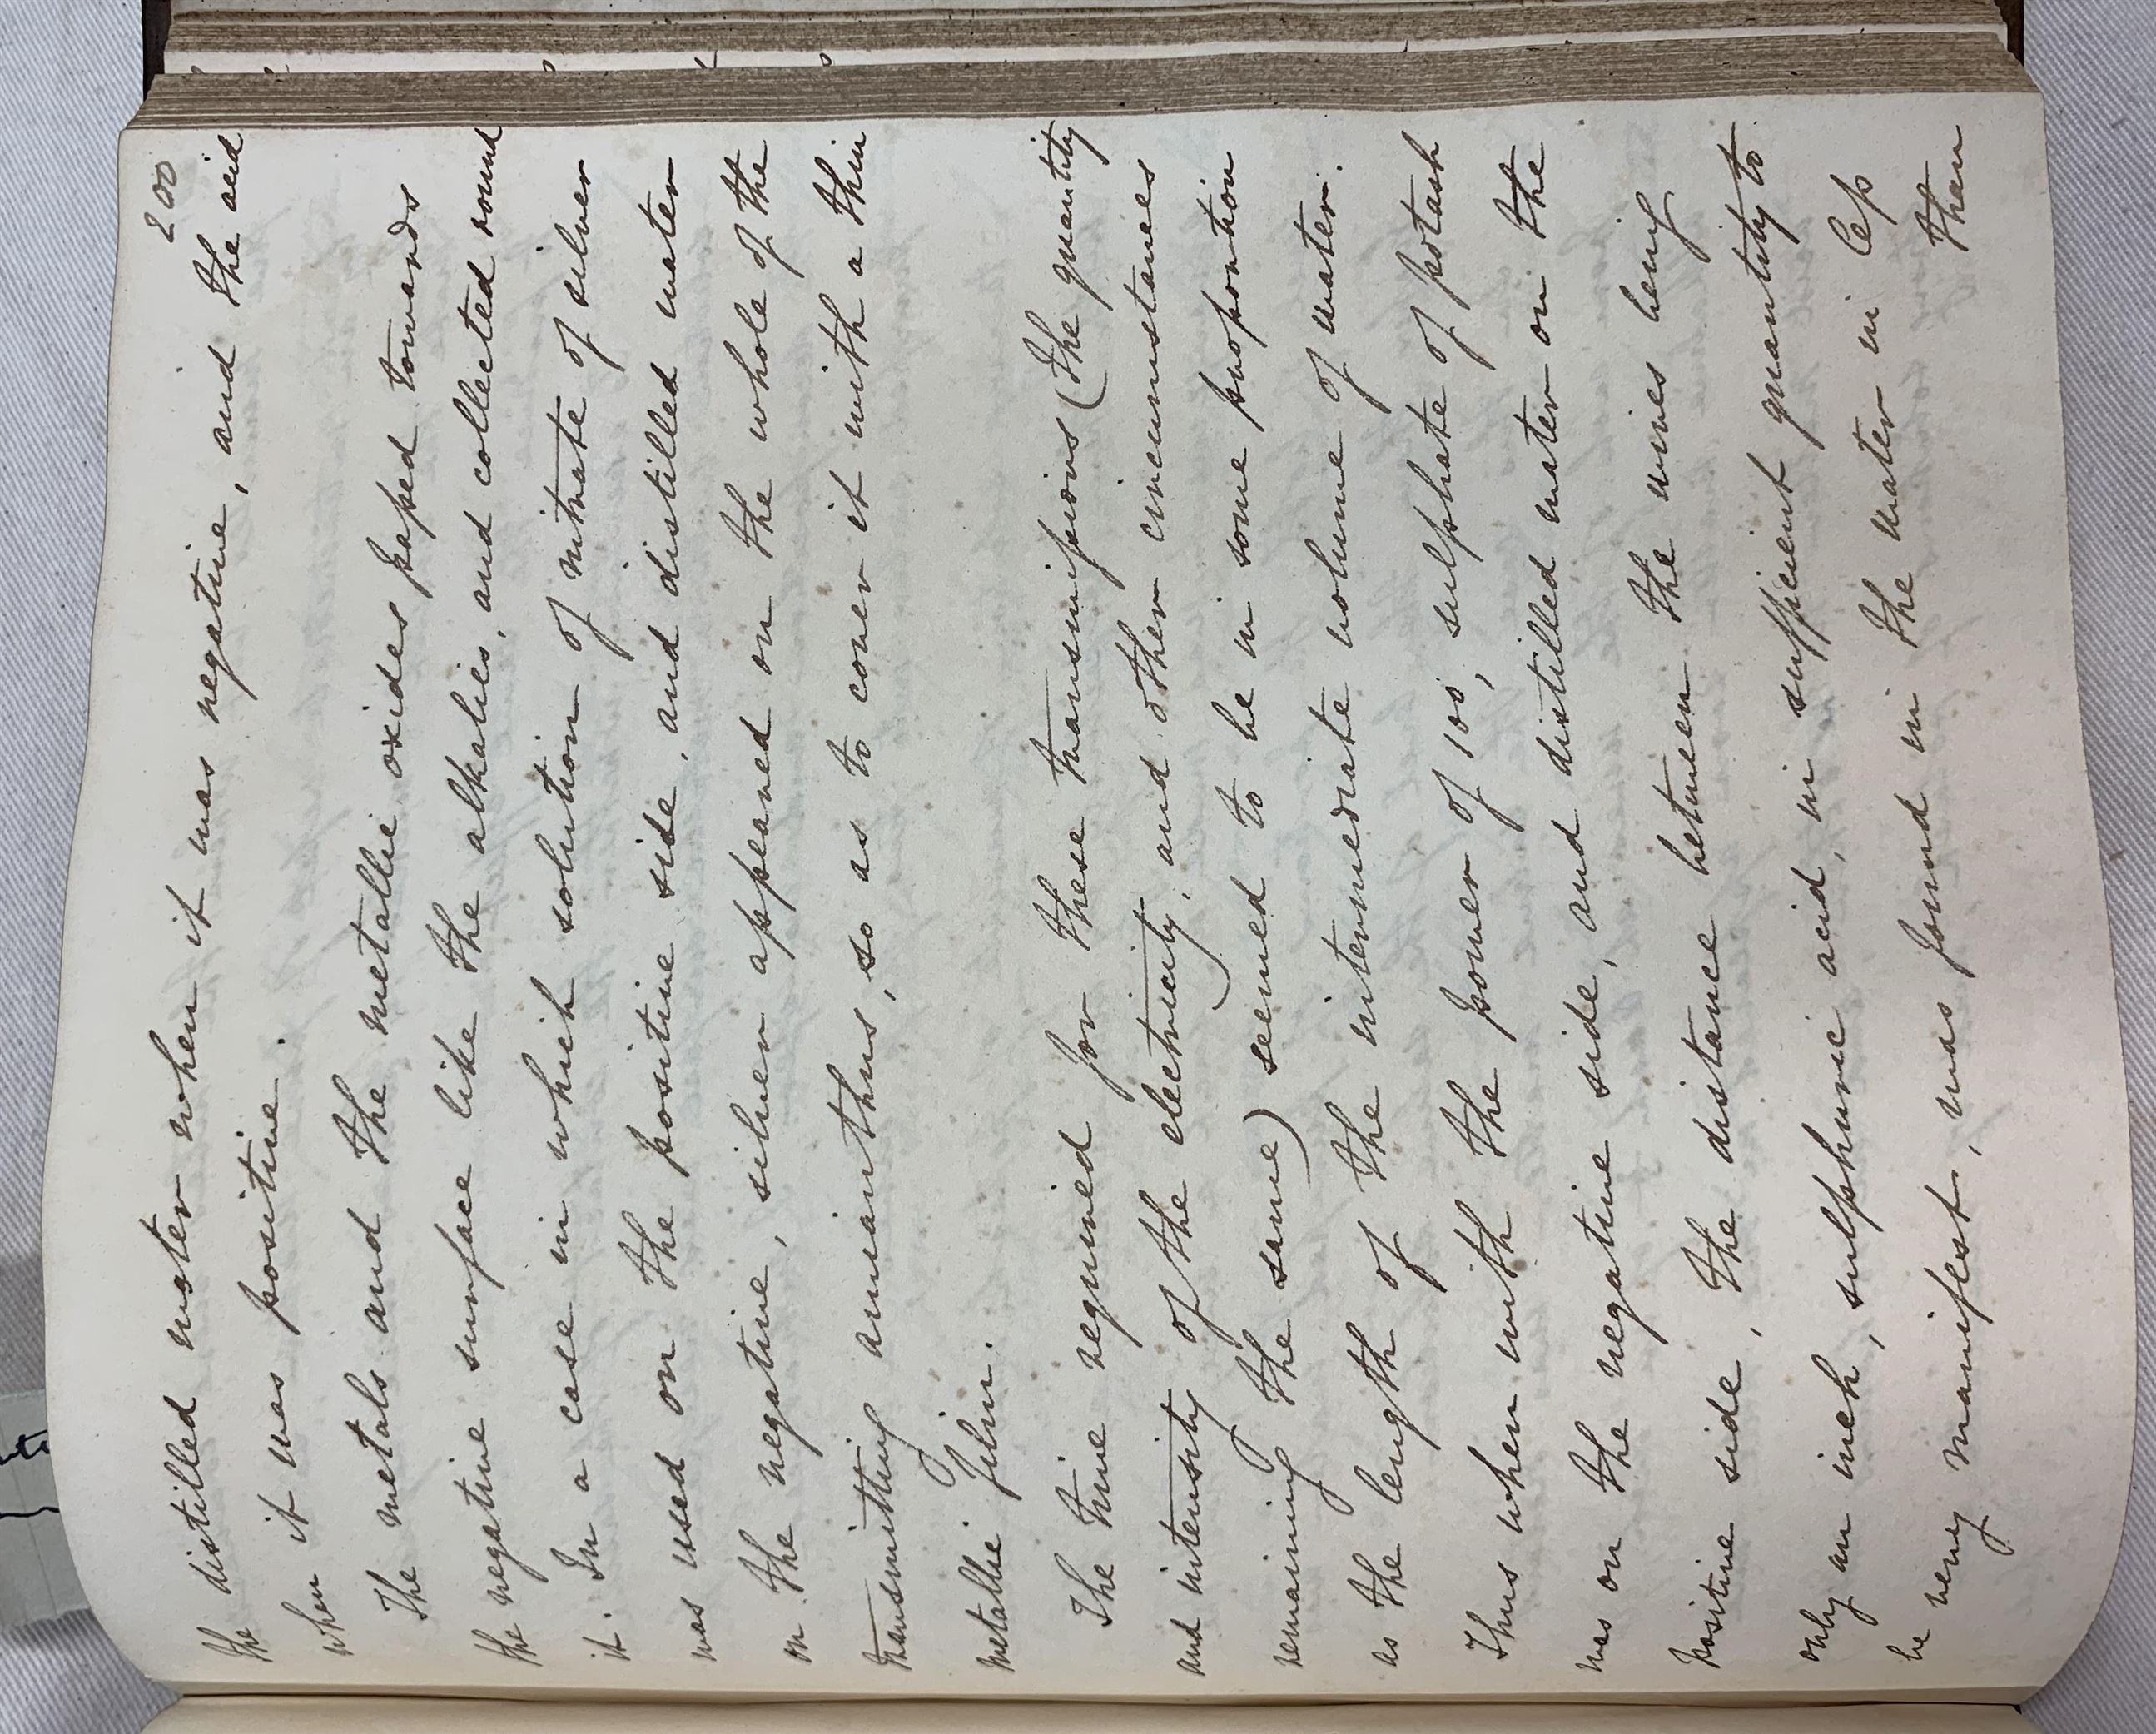 200
the distilled water when it was negative, and the acid
when it was positive.
The metals and the metallic oxides passed towards
the negative surface like the alkalies, and collected round
it. In a case in which solution of nitrate of silver
was used on the positive side, and distilled water
on the negative, silver appeared on the whole of the
transmitting amianthus, so as to cover it with a thin
metallic film.
The time required for these transmissions (the quantity
and intensity of the electricity, and other circumstances
remaining the same) seemed to be in some proportion
as the length of the intermediate volume of water.
Thus when with the power of 100, sulphate of potash
was on the negative side, and distilled water on the
positive side, the distance between the wires being
only an inch, sulphuric acid, in sufficient quantity to
be very manifest, was found in the water in less
than